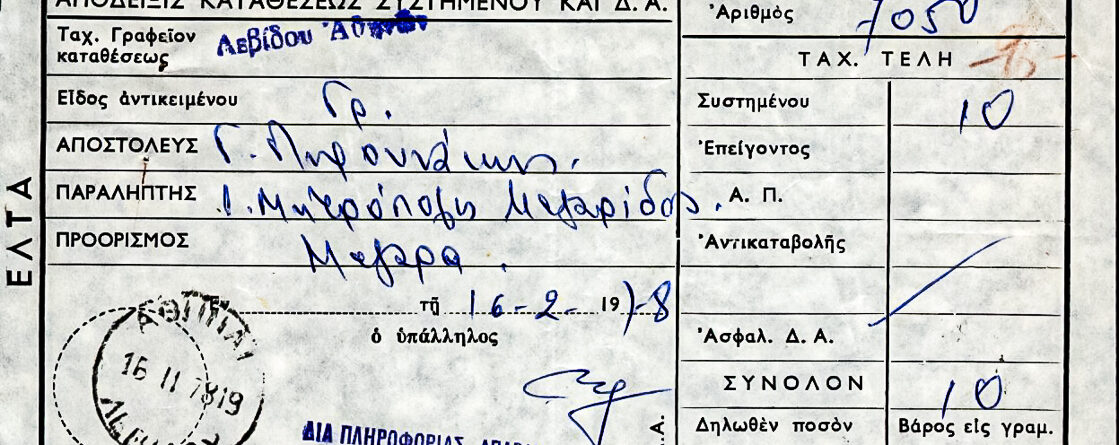 ΑΠΟΔΕΙΞΙΣ ΚΑΤΑΘΕΣΕΩΣ ΣΥΣΤΗΜΕΝΟΥ ΚΑΙ Δ. Α.
Ταχ. Γραφεῖον καταθέσεως Λεβίδου Ἀθηνῶν
Εἶδος ἀντικειμένου Γρ.
ΑΠΟΣΤΟΛΕΥΣ Γ. Πυρουνάκης.
ΠΑΡΑΛΗΠΤΗΣ Ι. Μητρόπολις Μεγαρίδος.
ΠΡΟΟΡΙΣΜΟΣ Μέγαρα.
τῇ 16-2-1978
ὁ ὑπάλληλος
ΕΛΤΑ
16 II 78 19
ΔΙΑ ΠΛΗΡΟΦΟΡΙΑΣ
Ἀριθμὸς 7050
ΤΑΧ. ΤΕΛΗ
Συστημένου 10
Ἐπείγοντος
Α. Π.
Ἀντικαταβολῆς
Ἀσφαλ. Δ. Α.
ΣΥΝΟΛΟΝ 10
Δηλωθὲν ποσόν
Βάρος εἰς γραμ.